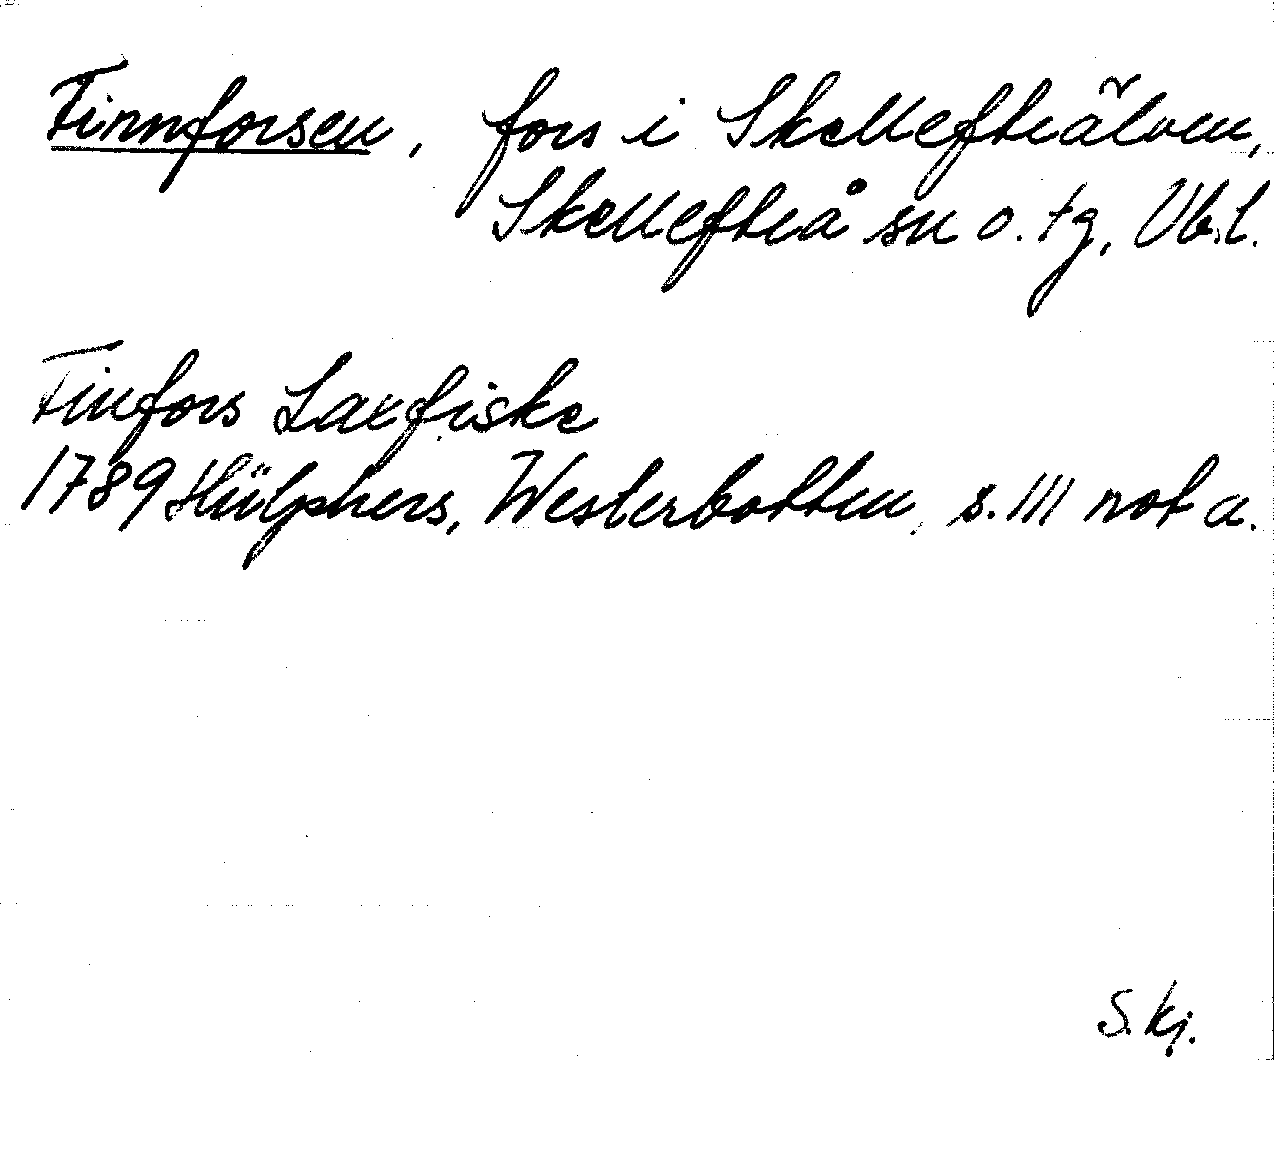 Finnforsen, fors i Skellefteälven,
Skellefteå sn o. tg, Vb. l.
Finfors Laxfiske
1789 Hülphers, Westerbotten, s. 111 not a.
S. Kj.